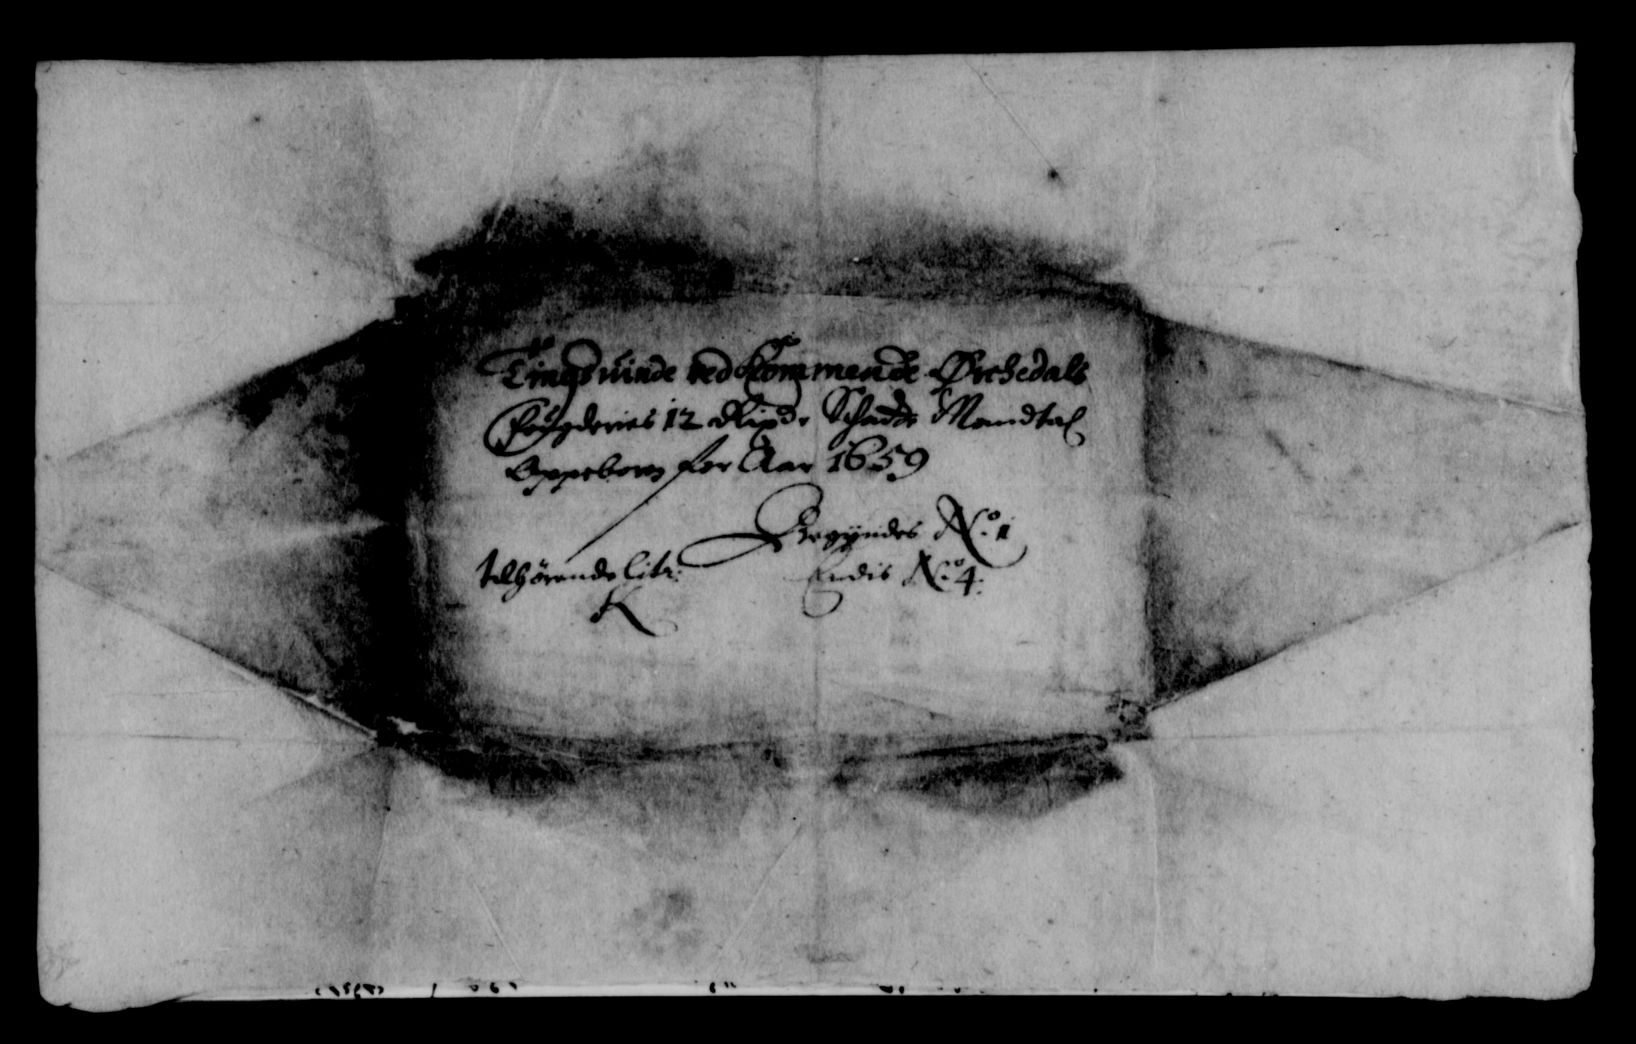 Tingsuinde ved Kommende Ørchedals
Fougderies 12 Rixd. Schatts Mandtal
Oppeborn for Aar 1659
Begyndes No. 1
tilhørende Litr: Endis No. 4.
K